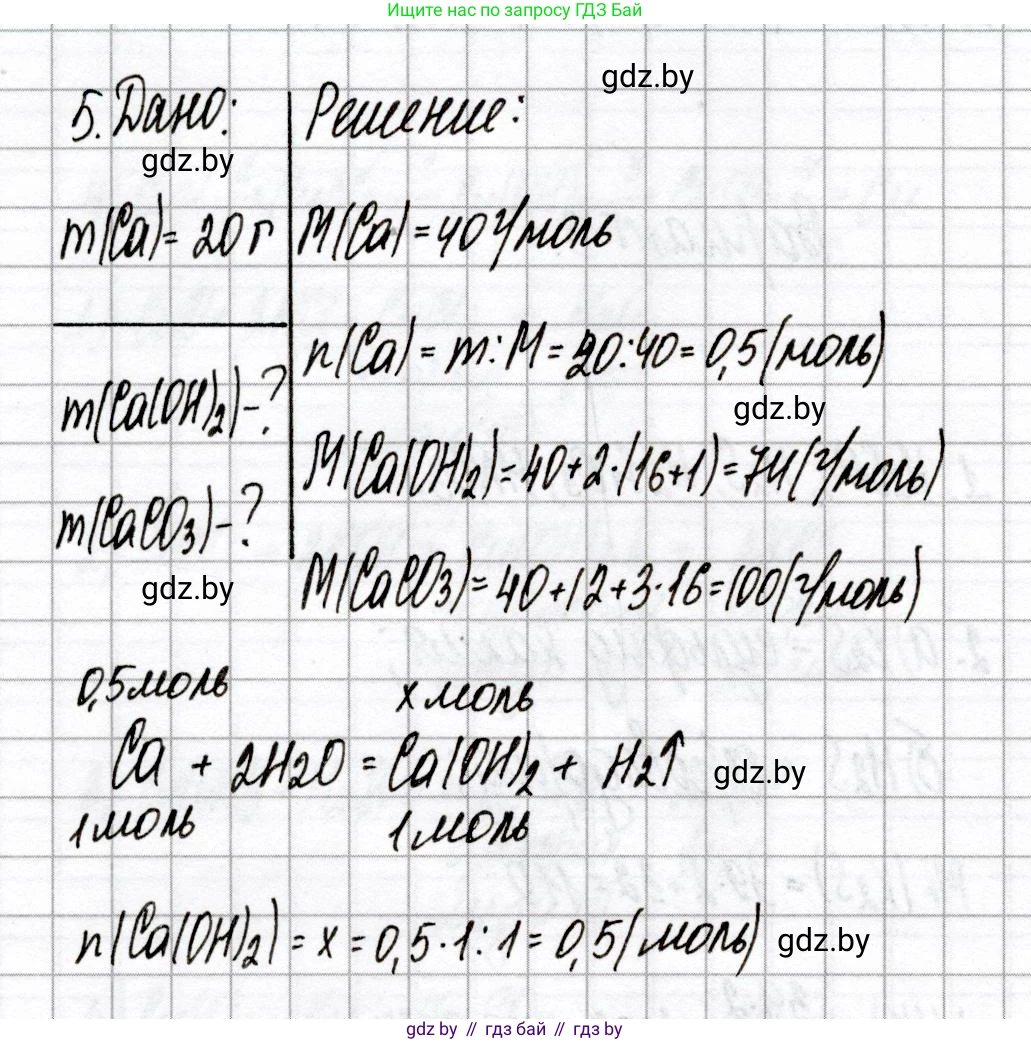 Ищите нас по запросу ГДЗ Бай
gdz.by
5. Дано:
Решение:
gdz.by
m(Ca)= 20 г
M(Ca) = 40 г/моль
n(Ca) = m:M = 20:40 = 0,5 (моль)
gdz.by
m(Ca(OH)2) - ?
M(Ca(OH)2) = 40+2·(16+1) = 74 (г/моль)
m(CaCO3) - ?
gdz.by
M(CaCO3) = 40+12+3·16=100(г/моль)
0,5моль x моль
Ca + 2H2O = Ca(OH)2 + H2↑ gdz.by
1моль 1 моль
n(Ca(OH)2) = x = 0,5·1:1 = 0,5(моль) gdz.by
gdz by // гдз бай // gdz by